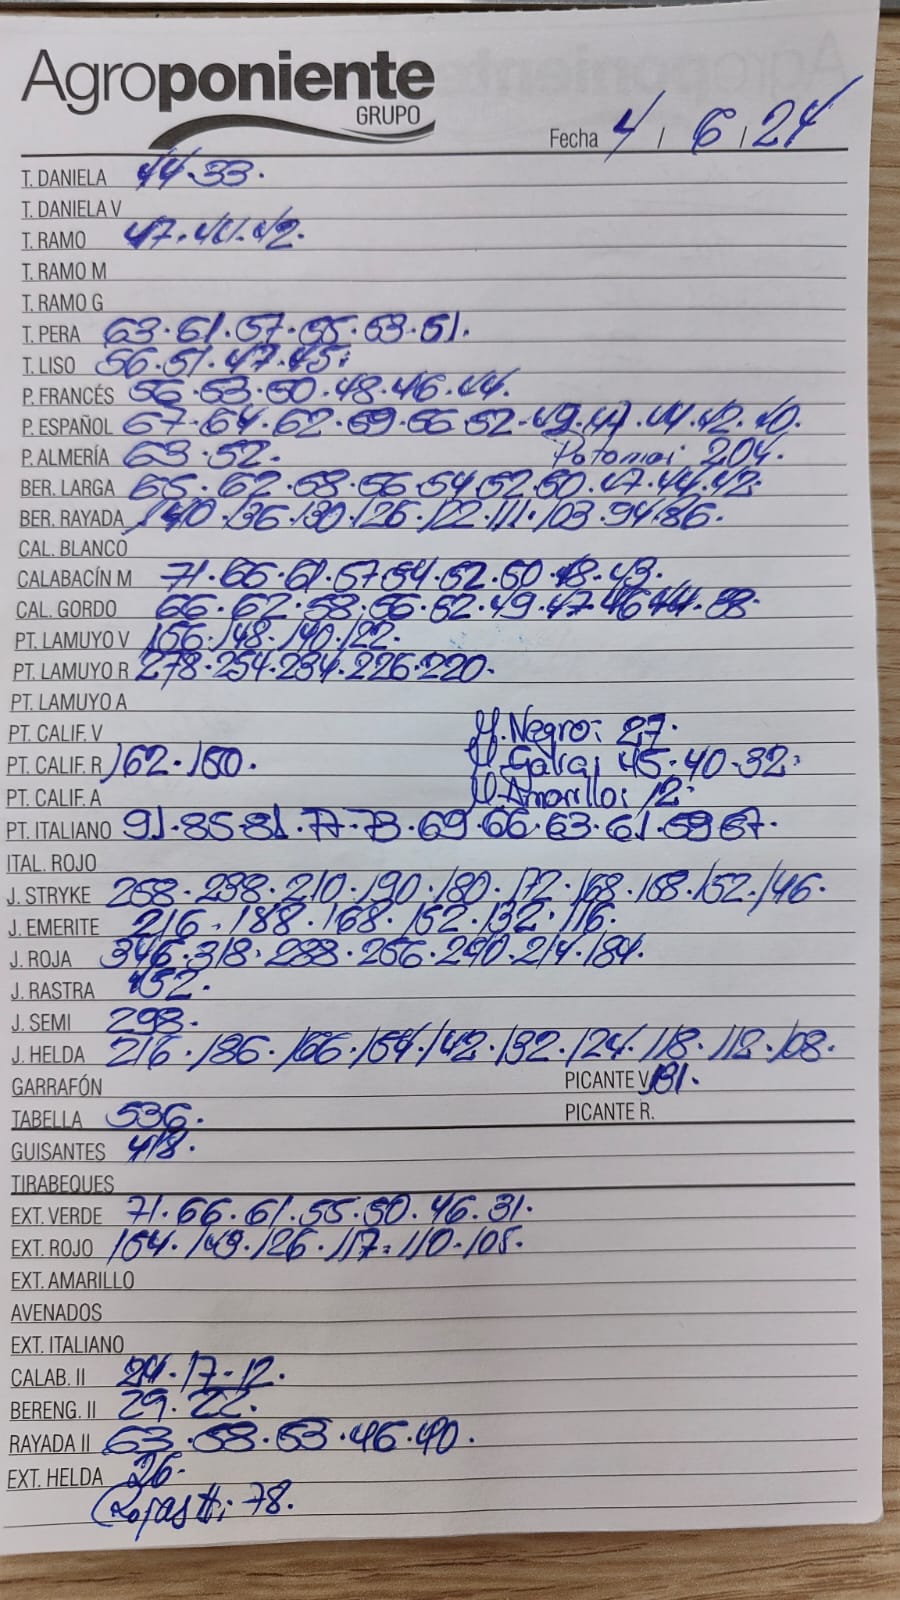 Agroponiente
GRUPO
Fecha 4 / 6 / 24
T. DANIELA 44.33.
T. DANELA V
T. RAMO 47.44.42.
T. RAMO M
T. RAMO G
T. PERA 63.61.57.55.53.51.
T. LISO 56.51.47.45.
P. FRANCÉS 56.53.50.48.46.44.
P. ESPAÑOL 67.64.62.59.56 52.49.47.44.42.40.
P. ALMERÍA 63.52. Patomoi 204.
BER. LARGA 65.62.58.56.54.52.50.47.44.42.
BER. RAYADA 140.136.130.126.122.111.103.94.86.
CAL. BLANCO
CALABACÍN M 71.66.61.57 54.52.50.48.43.
CAL. GORDO 66.62.58.56.52.49.47 46 44.38.
PT. LAMUYO V 156.148.140.122.
PT. LAMUYO R 278.254.234.226.220.
PT. LAMUYO A
PT. CALIF. V M.Negro: 27.
PT. CALIF. R 162.150. M Galia: 45.40.32.
PT. CALIF. A M.Amarillo: 12.
PT. ITALIANO 91.85.81.77.73.69.66.63.61.59 57.
ITAL. ROJO
J. STRYKE 258.238.210.190.180.172.168.158.152.146.
J. EMERITE 216.188.168.152.132.116.
J. ROJA 346.318.288.256.240.214.184.
J. RASTRA 152.
J. SEMI 298.
J. HELDA 216.186.166.154.142.132.124.118.112.108.
GARRAFÓN PICANTE V 131.
TABELLA 536. PICANTE R.
GUISANTES 418.
TIRABEQUES
EXT. VERDE 71.66.61.55.50.46.31.
EXT. ROJO 154.149.126.117.110.105.
EXT. AMARILLO
AVENADOS
EXT. ITALIANO
CALAB. II 24.17.12.
BERENG. II 29.22.
RAYADA II 63.58.53.46.40.
EXT. HELDA 26.
Rojas II: 78.